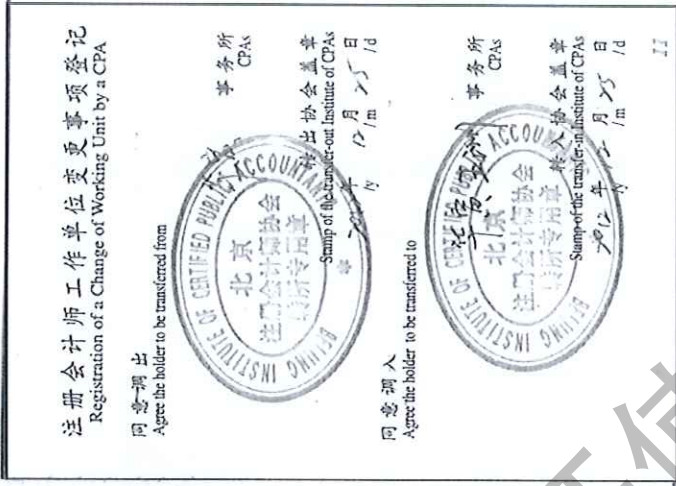 注册会计师工作单位变更事项登记
Registration of a Change of Working Unit by a CPA
同意调出
Agree the holder to be transferred from
事务所
CPAs
BEIJING INSTITUTE OF CERTIFIED PUBLIC ACCOUNTANTS
北京
注册会计师协会
转所专用章
转出协会盖章
Stamp of the transfer-out Institute of CPAs
年 12 月 25 日
/y /m /d
同意调入
Agree the holder to be transferred to
事务所
CPAs
BEIJING INSTITUTE OF CERTIFIED PUBLIC ACCOUNTANTS
北京
注册会计师协会
转所专用章
转入协会盖章
Stamp of the transfer-in Institute of CPAs
2012 年 12 月 25 日
/y /m /d
11